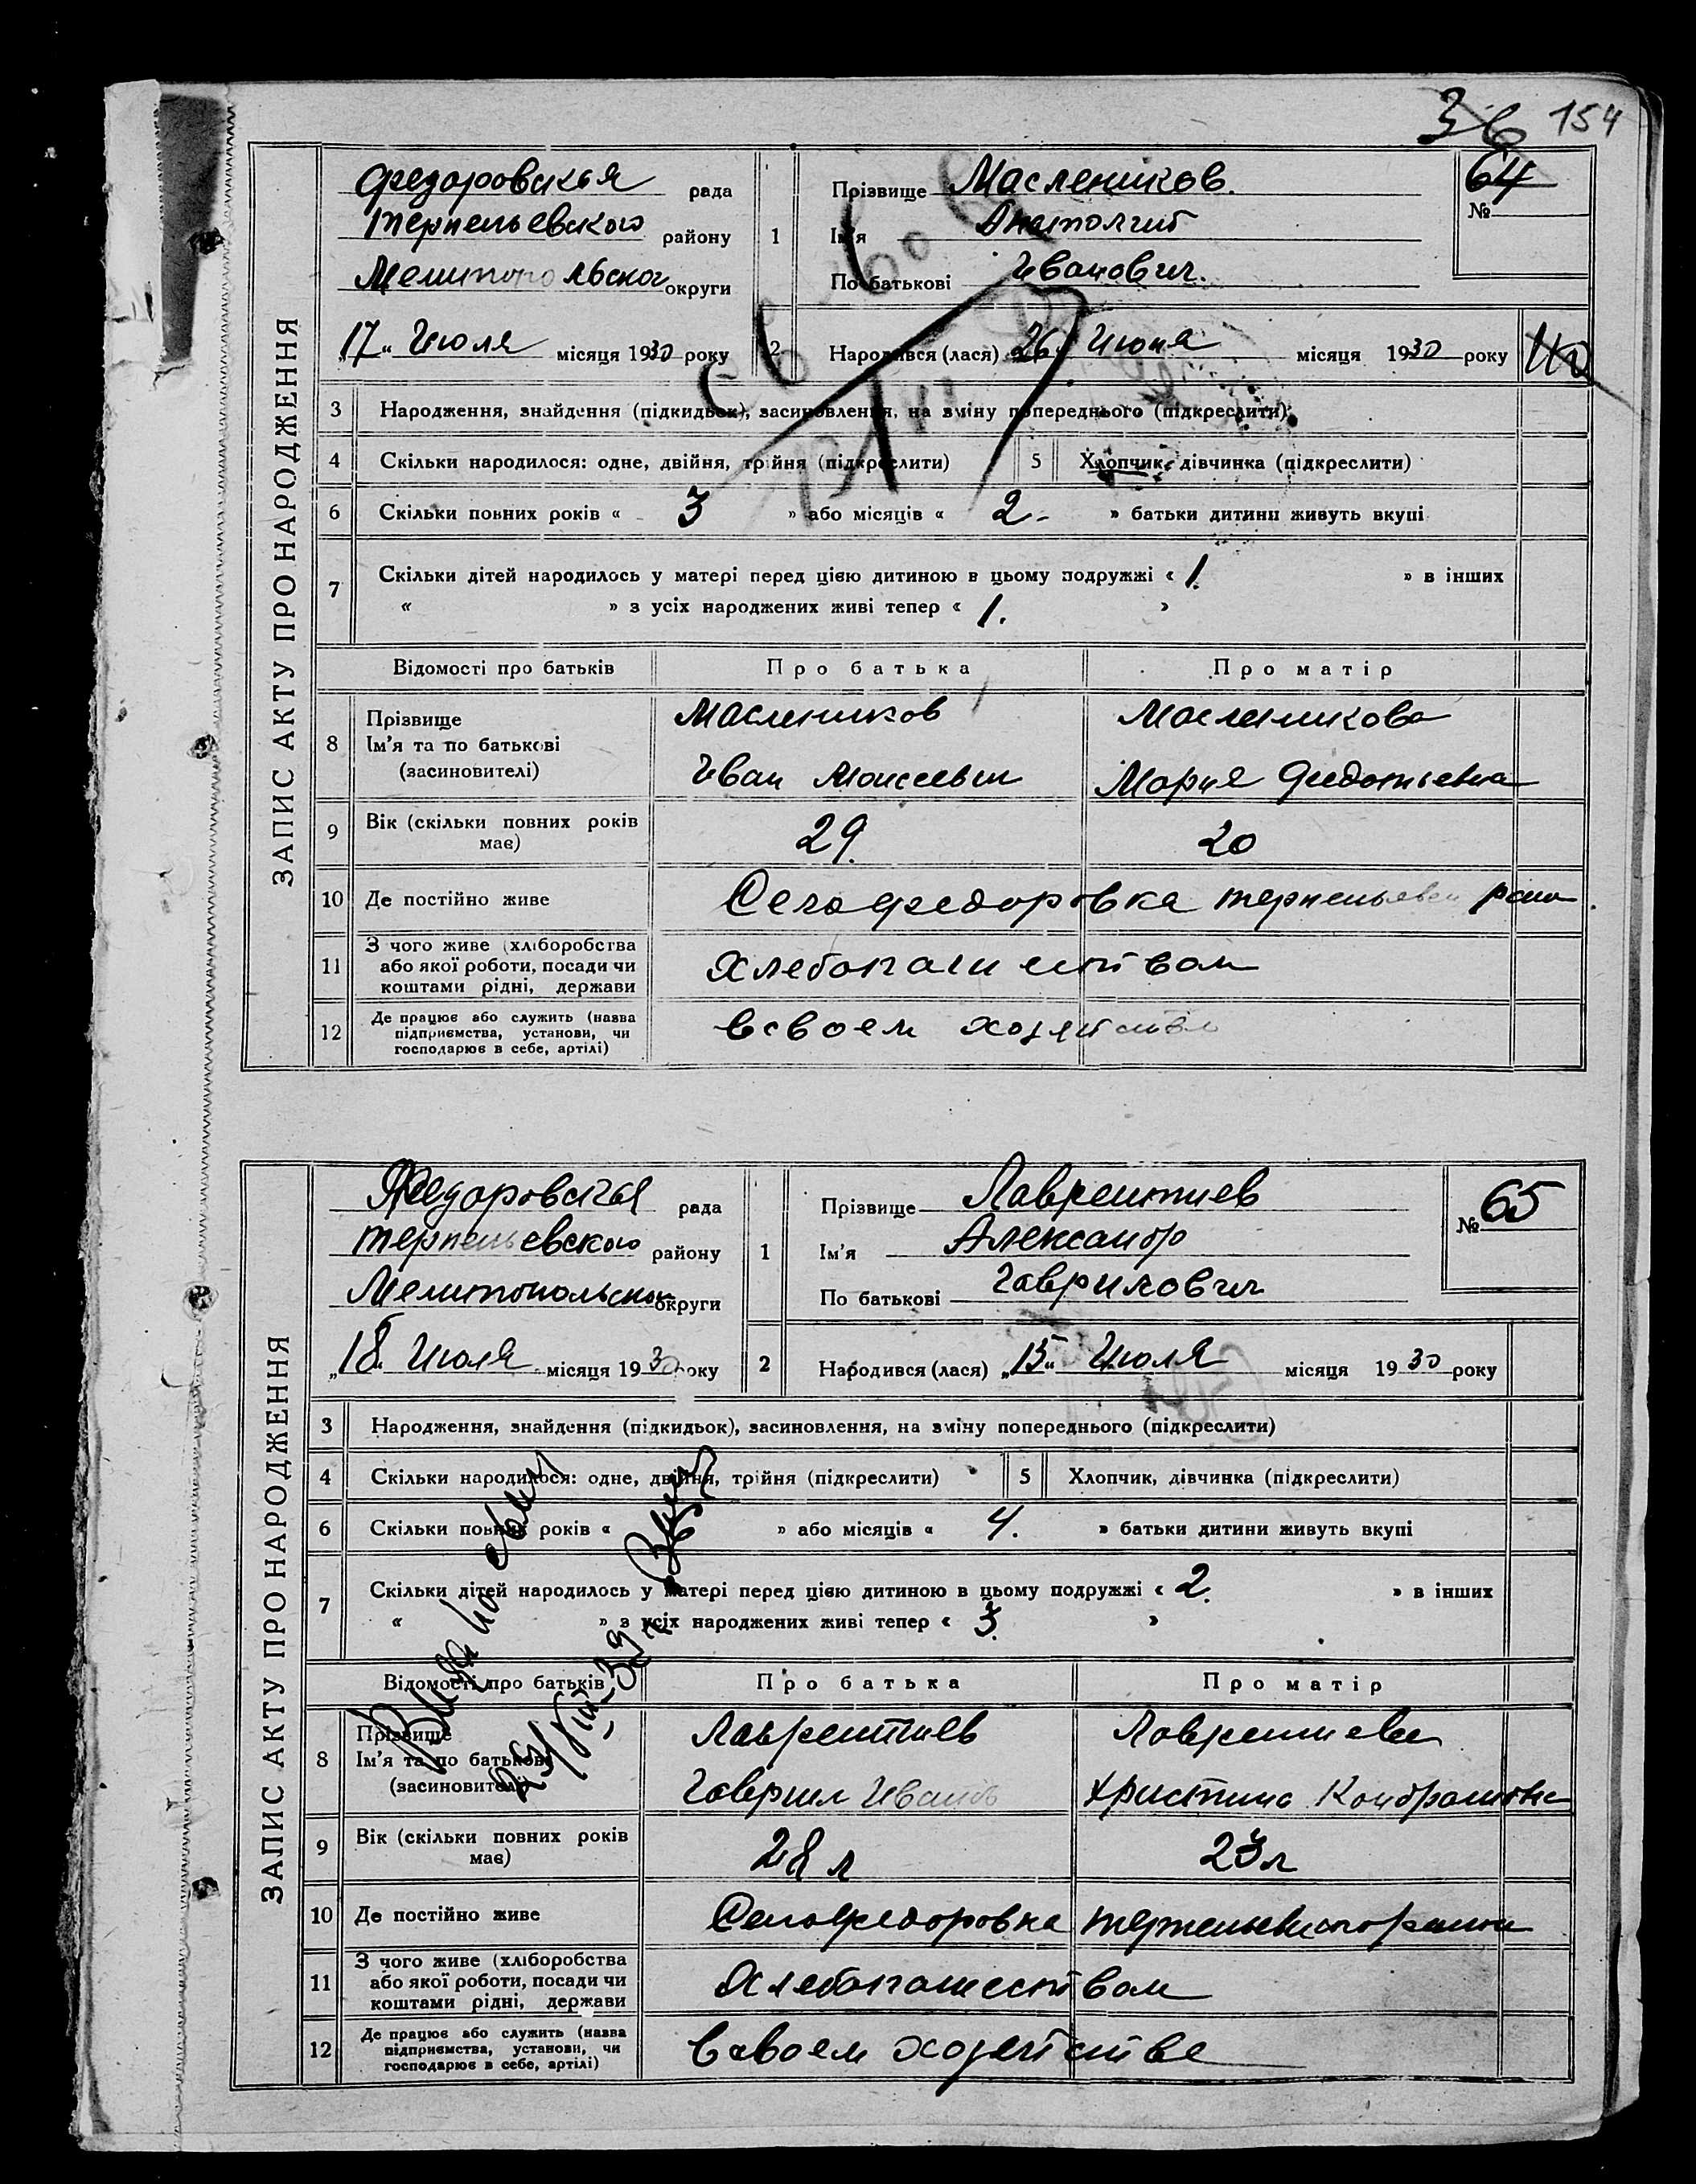 154
ЗАПИС АКТУ ПРО НАРОДЖЕННЯ
Федоровская рада
Терпеньевского району
Мелитопольской округи
"17" Июля місяця 1930 року
1 Прізвище Маслеников.
Ім'я Анатолий
По батькові Иванович.
64
№
2 Народився (лася) "26" Июня місяця 1930 року
3 Народження, знайдення (підкидьок), засиновлення, на зміну попереднього (підкреслити)
4 Скільки народилося: одне, двійня, трійня (підкреслити) 5 Хлопчик, дівчинка (підкреслити)
6 Скільки повних років « 3 » або місяців « 2 - » батьки дитини живуть вкупі
7 Скільки дітей народилось у матері перед цією дитиною в цьому подружжі « 1. » в інших
« » з усіх народжених живі тепер « 1. »
Відомості про батьків Про батька Про матір
8 Прізвище Маслеников Масленикова
Ім'я та по батькові
(засиновителі) Иван Моисеевич Мария Федотьевна
9 Вік (скільки повних років має) 29. 20
10 Де постійно живе Село Федоровка Терпеньевск
11 З чого живе (хліборобства
або якої роботи, посади чи
коштами рідні, держави Хлебопашеством
12 Де працює або служить (назва
підприємства, установи, чи
господарює в себе, артілі) В своем хозяйстве
ЗАПИС АКТУ ПРО НАРОДЖЕННЯ
Федоровская рада
Терпеньевского району
Мелитопольской округи
"18" Июля місяця 1930 року
1 Прізвище Лаврентиев
Ім'я Александр
По батькові Гаврилович
№ 65
2 Народився (лася) "15" Июля місяця 1930 року
3 Народження, знайдення (підкидьок), засиновлення, на зміну попереднього (підкреслити)
4 Скільки народилося: одне, двійня, трійня (підкреслити) 5 Хлопчик, дівчинка (підкреслити)
6 Скільки повних років « » або місяців « 4. » батьки дитини живуть вкупі
7 Скільки дітей народилось у матері перед цією дитиною в цьому подружжі « 2. » в інших
« » з усіх народжених живі тепер « 3. »
Відомості про батьків Про батька Про матір
8 Прізвище Лаврентиев Лаврентиева
Ім'я та по батькові
(засиновителі) Гаврил Иванов Христина Кондратовна
9 Вік (скільки повних років має) 28 л 23 л
10 Де постійно живе Село Федоровка
11 З чого живе (хліборобства
або якої роботи, посади чи
коштами рідні, держави Хлебопашеством
12 Де працює або служить (назва
підприємства, установи, чи
господарює в себе, артілі) В своем хозяйстве